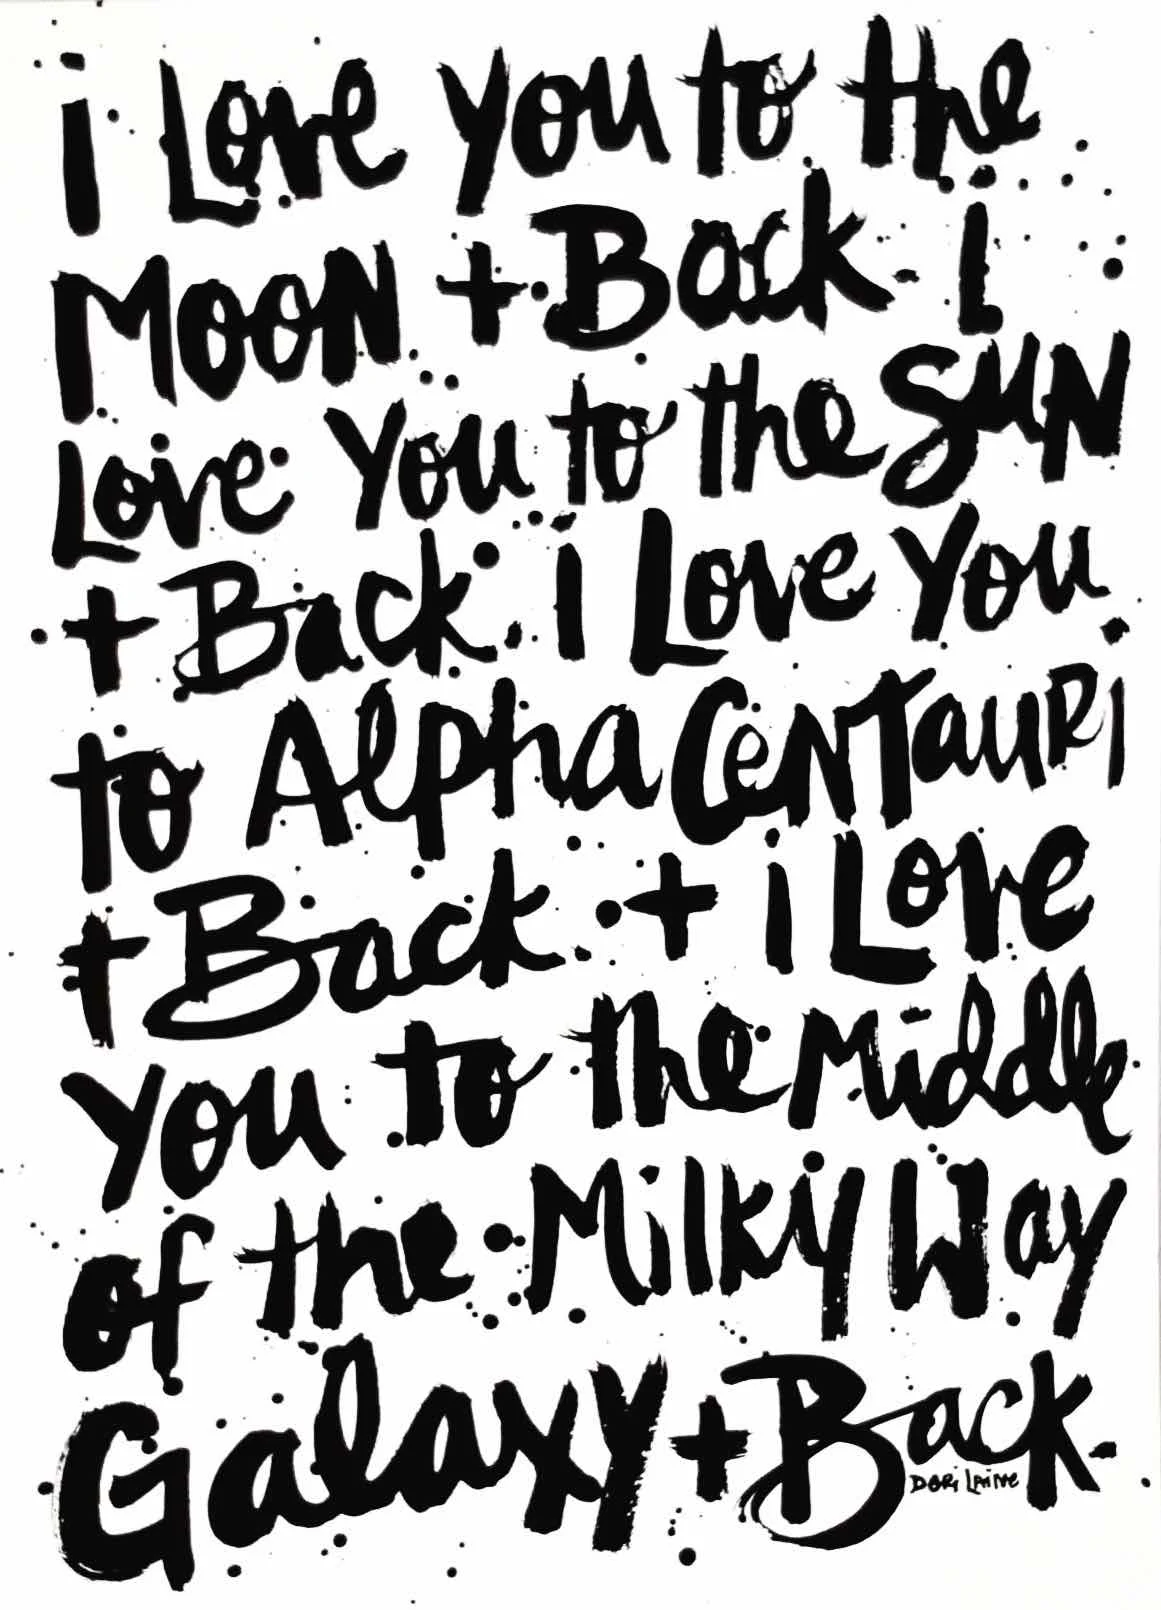 i Love you to the
MOON + Back. i
Love You to the SUN
+ Back. i Love You
to Alpha CENTAURI
+ Back. + i Love
you to the Middle
of the Milky Way
Galaxy + Back.
DORi LAiNe